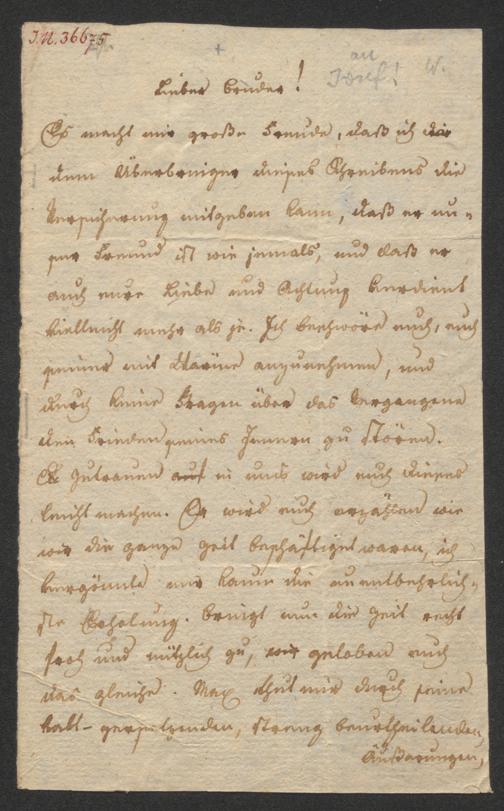 I.N. 36675
an
Josef! W.
Lieber Bruder!
Es macht mir große Freude, daß ich dir
dem Überbringer dieses Schreibens die
Versicherung mitgeben kann, daß er un=
ser Freund ist wie jemals, und daß er
auch eure Liebe und Achtung verdient
vielleicht mehr als je. Ich beschwöre euch, euch
seiner mit Wärme anzunehmen, und
durch keine Fragen über das Vergangene
den Frieden seines Innern zu stören.
Zutrauen auf in uns wird euch dieses
leicht machen. Er wird euch erzählen wie
wir die ganze Zeit beschäftiget waren, ich
vergönnte mir kaum die unentbehrlich=
ste Erholung. Bringt nun die Zeit recht
froh und nützlich zu, wir geloben euch
das gleiche. Max thut mir durch seine
kalt- zersetzenden, streng beurtheilenden,
Äußerungen,